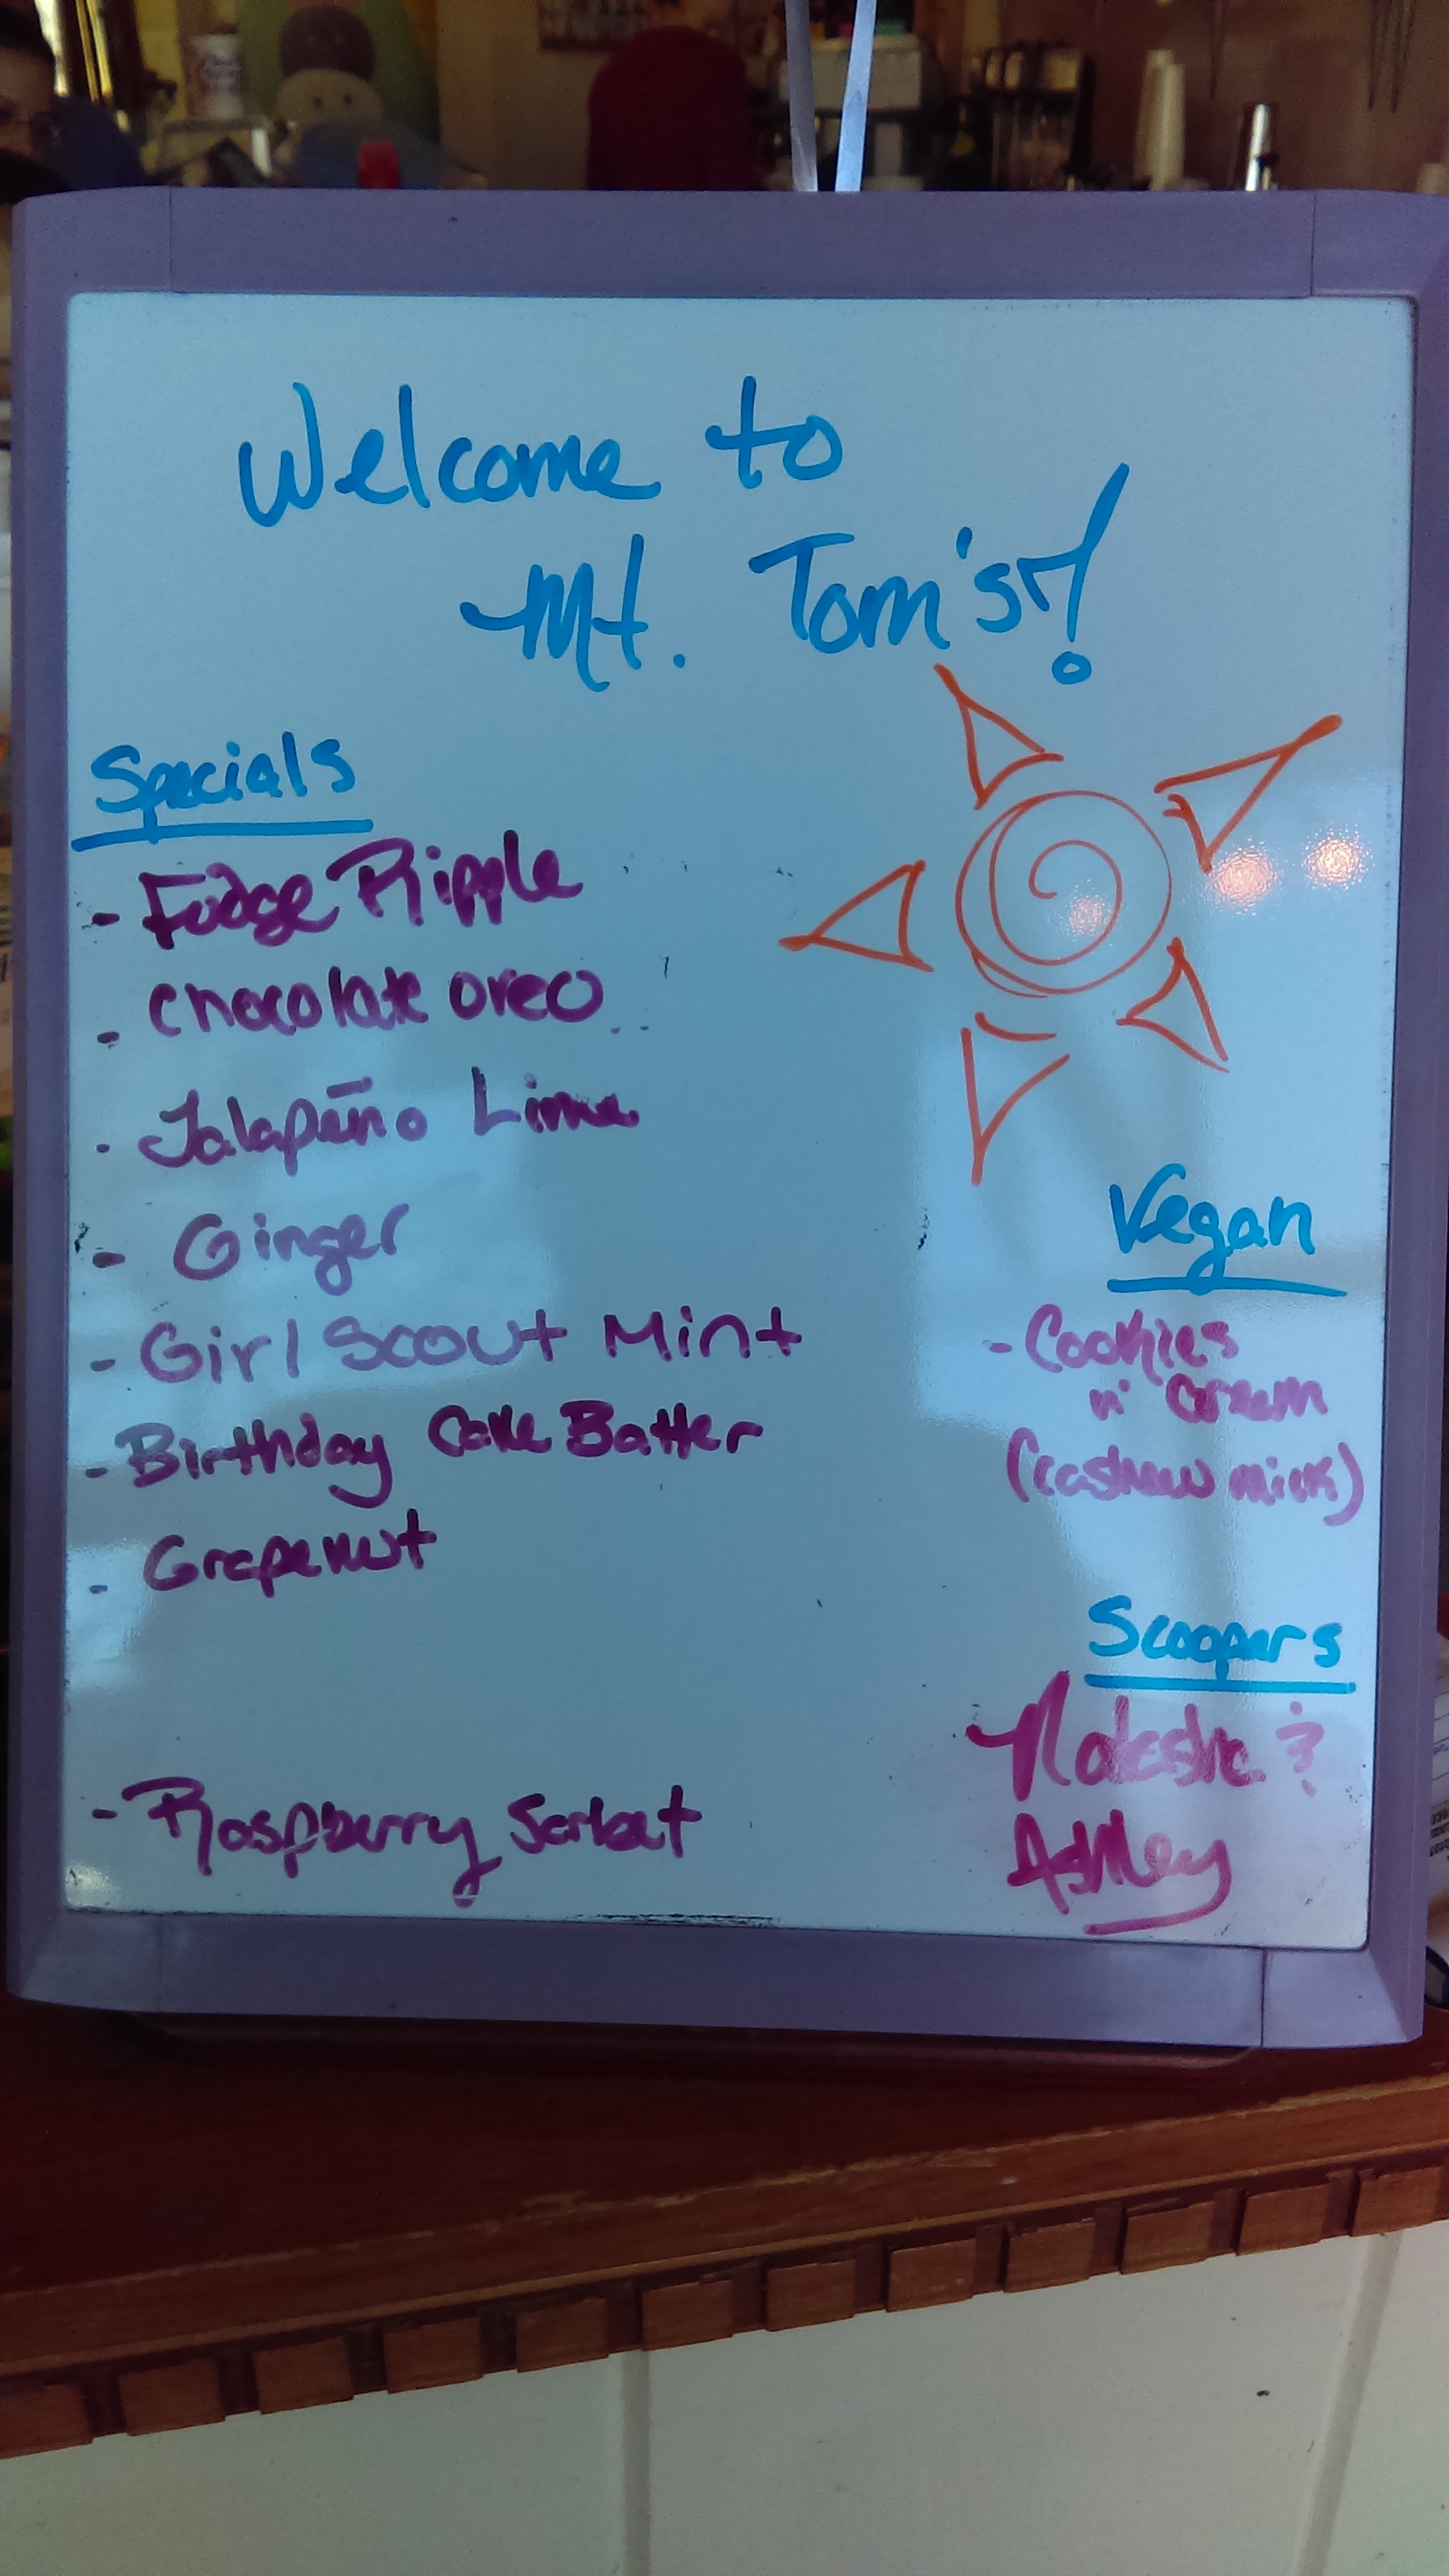 Welcome to
Mt. Tom's!
Specials
- Fudge Ripple
- Chocolate Oreo
- Jalapeño Lime
- Ginger
- Girl Scout Mint
- Birthday Cake Batter
- Grapenut
- Raspberry Sorbet
Vegan
- Cookies
n' Cream
(cashew milk)
Scoopers
Natasha &
Ashley